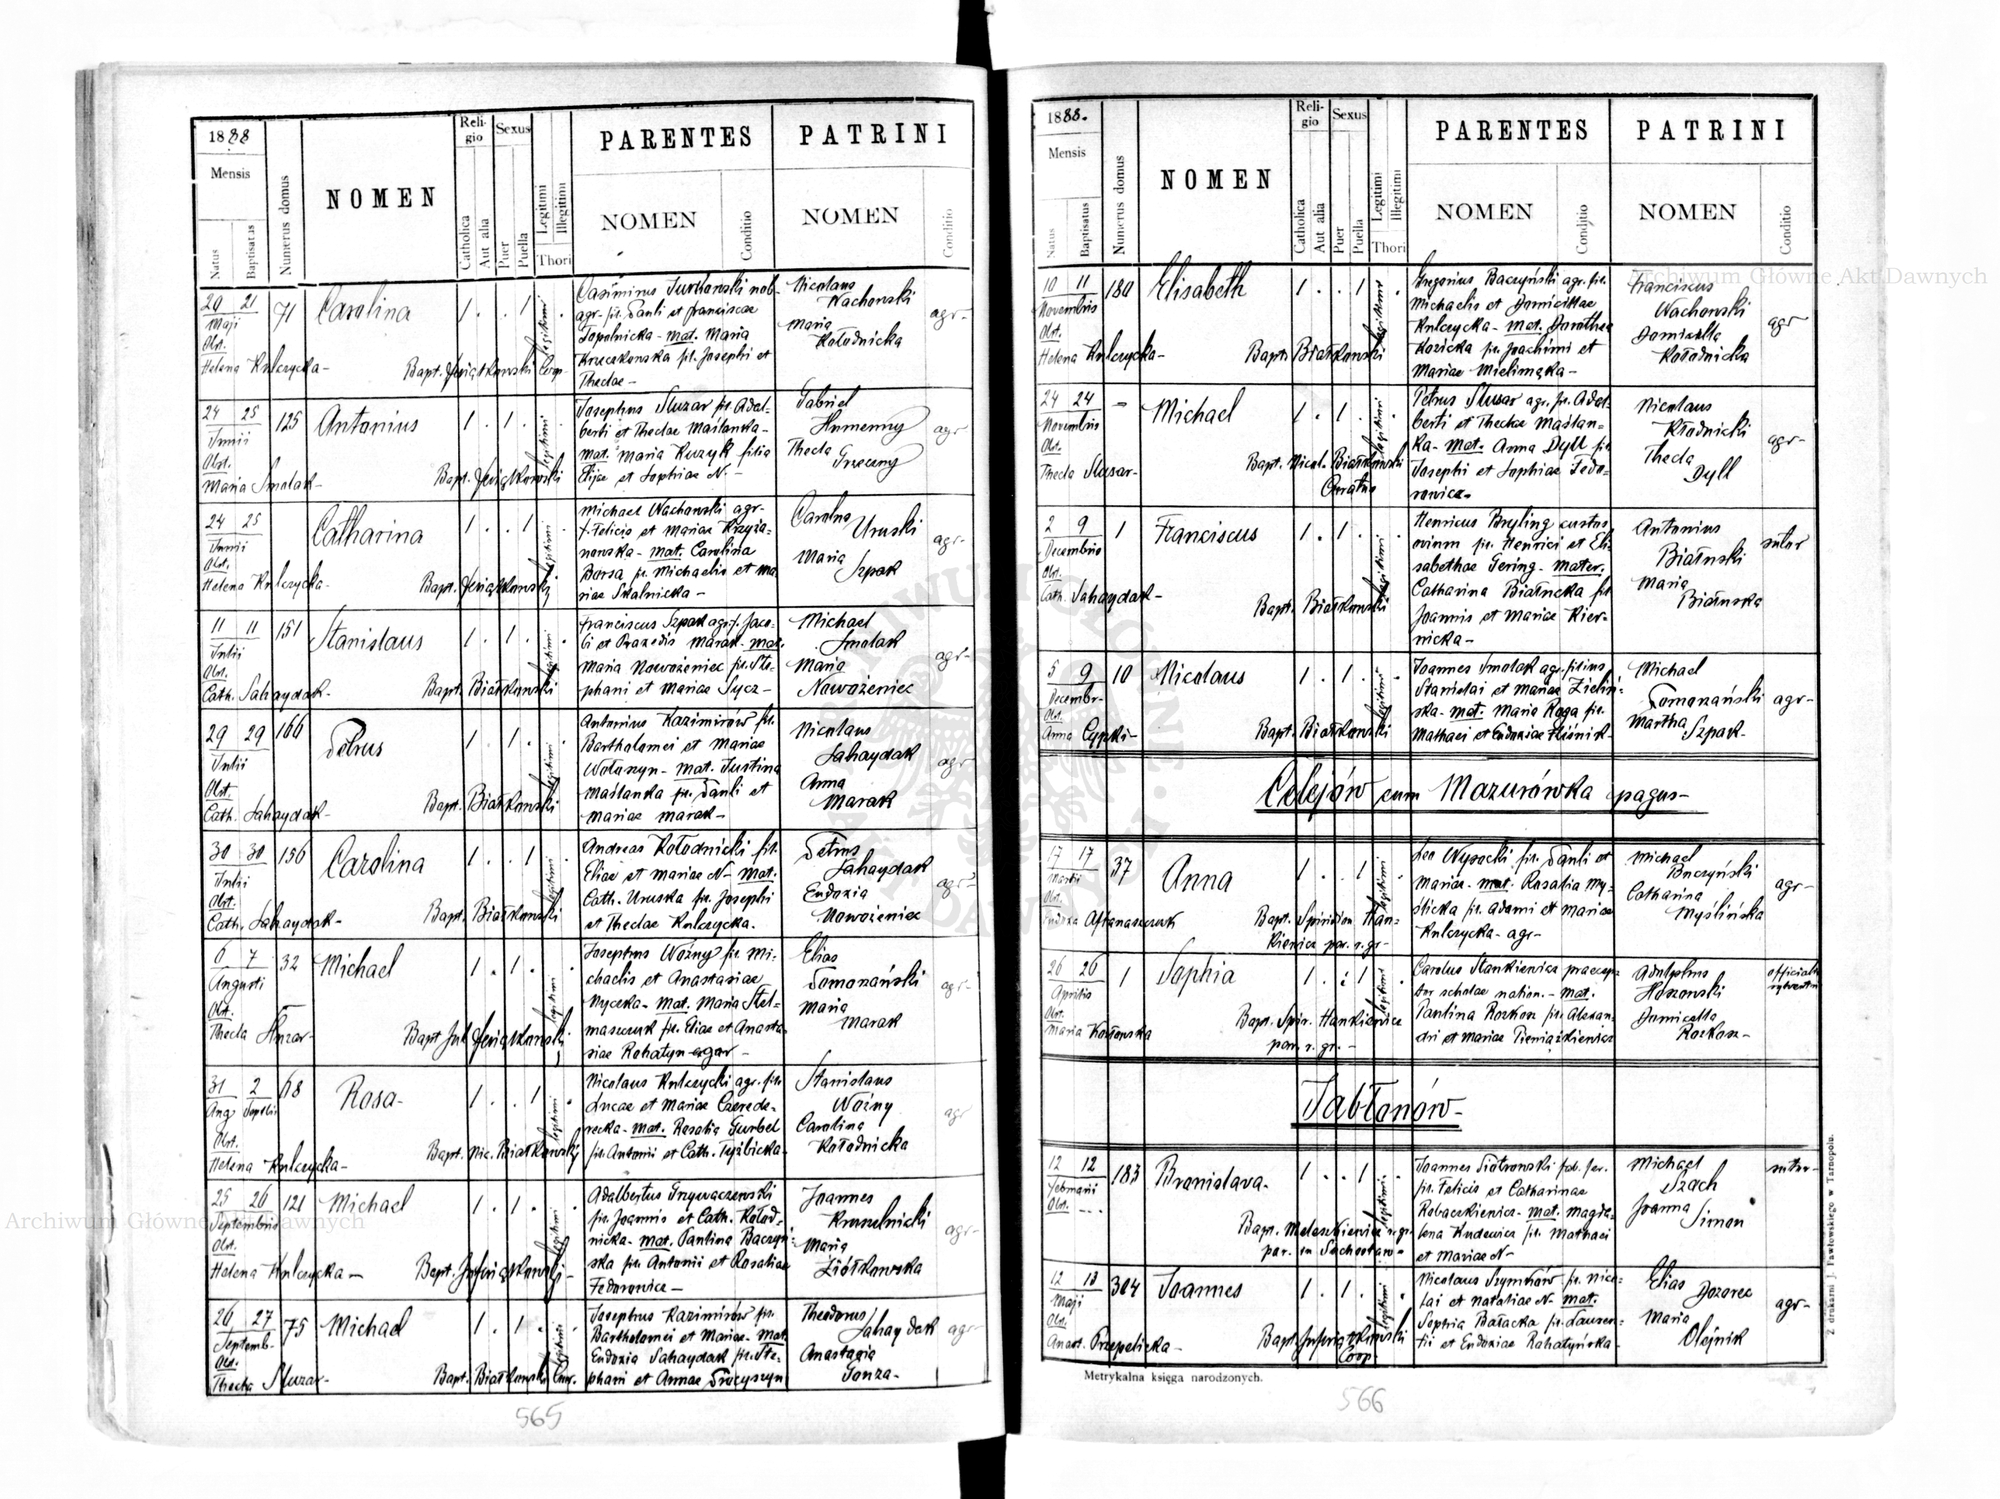 1888
Mensis
Natus
Baptisatus
Numerus domus
NOMEN
Religio
Catholica
Aut alia
Sexus
Puer
Puella
Legitimi
Illegitimi
Thori
PARENTES
NOMEN
Conditio
PATRINI
NOMEN
Conditio
20 21 71 Carolina 1 . . 1 legitimi
Maji
Obst.
Helena Kulczycka- Bapt. Coop.
Casimirus Turkowski nob.
agr. fil. Pauli et Franciscae
Topolnicka- mat. Maria
Kruczkowska fil. Josephi et
Theclae-
Nicolaus
Wachowski
Maria
Kołodnicka
agr-
24 25 125 Antonius 1 . 1 . legitimi
Junii
Obst.
Maria Smolak- Bapt.
Josephus Sluzar fil. Adal-
berti et Theclae Maślanka-
mat. Maria Kuzyk filia
Eliae et Sophiae N-
Gabriel
Humenny
Thecla
Grzeczny
agr
24 25 Catharina 1 . . 1 legitimi
Junii
Obst.
Helena Kulczycka- Bapt.
Michael Wachowski agr-
f. Felicis et Mariae Krzyża-
nowska- mat. Carolina
Barsa fil. Michaelis et Ma-
riae Skalnicka-
Carolus
Uruski
Maria
Szpak
agr-
11 11 151 Stanislaus 1 . 1 . legitimi
Julii
Obst.
Cath. Sahaydak- Bapt. Białkowski
Franciscus Szpak agr. f. Jaco-
bi et Praxedis Marak- mat.
Maria Nowożeniec fil. Ste-
phani et Mariae Sycz-
Michael
Smolak
Maria
Nowożeniec
agr-
29 29 166 Petrus 1 . 1 . legitimi
Julii
Obst.
Cath. Sahaydak- Bapt. Białkowski
Antonius Kazimirów fil.
Bartholomei et Mariae
Wołoszyn- mat. Justina
Maślanka fil. Pauli et
Mariae Marak-
Nicolaus
Sahaydak
Anna
Marak
agr
30 30 156 Carolina 1 . . 1 legitimi
Julii
Obst.
Cath. Sahaydak- Bapt. Białkowski
Andreas Kołodnicki fil.
Eliae et Mariae N- mat.
Cath. Uruska fil. Josephi
et Theclae Kulczycka.
Petrus
Sahaydak
Eudoxia
Nowożeniec
agr-
6 7 32 Michael 1 . 1 . legitimi
Augusti
Obst.
Thecla Bapt.
Josephus Woźny fil. Mi-
chaelis et Anastasiae
Mycka- mat. Maria Stel-
maszczuk fil. Eliae et Anasta-
siae Rohatyn- agr-
Elias
Domozański
Maria
Marak
agr-
31 2 68 Rosa- 1 . . 1 . legitimi
Aug. Septbr
Obst.
Helena Kulczycka- Bapt. Nic. Białkowski
Nicolaus Kulczycki agr. fil.
Lucae et Mariae Czerede-
recka- mat. Rosalia Gurbel
fil. Antonii et Cath.
Stanislaus
Woźny
Carolina
Kołodnicka
agr
25 26 121 Michael 1 . 1 . legitimi
Septembris
Obst.
Helena Kulczycka- Bapt.
Adalbertus Grzywaczewski
fil. Joannis et Cath. Kołod-
nicka- mat. Paulina Baczyń-
ska fil. Antonii et Rosaliae
Fedorowicz-
Joannes
Maria
Ziółkowska
agr-
26 27 75 Michael 1 . 1 . legitimi
Septemb-
Obst.
Thecla Sluzar- Bapt. Białkowski Cur.
Josephus Kazimirów fil.
Bartholomei et Mariae- mat.
Eudoxia Sahaydak fil. Ste-
phani et Annae
Theodorus
Sahaydak
Anastasia
Gonza-
agr-
565
1888.
Mensis
Natus
Baptisatus
Numerus domus
NOMEN
Religio
Catholica
Aut alia
Sexus
Puer
Puella
Legitimi
Illegitimi
Thori
PARENTES
NOMEN
Conditio
PATRINI
NOMEN
Conditio
10 11 180 Elisabeth 1 . . 1 legitimi
Novembris
Obst.
Helena Kulczycka- Bapt. Białkowski
Gregorius Baczyński agr. fil.
Michaelis et Domicillae
Kulczycka- mat. Dorothea
Kozicka fil. Joachimi et
Mariae
Franciscus
Wachowski
Domicilla
Kołodnicka
agr
24 24 - Michael 1 . 1 . legitimi
Novembris
Obst.
Thecla Slusar- Bapt. Nicol. Białkowski
Curatus
Petrus Slusar agr. fil. Adal-
berti et Theclae Maślan-
ka- mat. Anna Dyll fil.
Josephi et Sophiae Fedo-
rowicz-
Nicolaus
Kłodnicki
Thecla
Dyll
agr-
2 9 1 Franciscus 1 . 1 . legitimi
Decembris
Obst.
Cath. Sahaydak- Bapt. Białkowski
Henricus Breyling custos
ovium fil. Henrici et Eli-
sabethae Gering- mater.
Catharina Białuska fil.
Joannis et Mariae Kier-
nicka-
Antonius
Białuski
Maria
Białuska
sutor
5 9 10 Nicolaus 1 . 1 . legitimi
Decembr-
Obst.
Anna Bapt. Białkowski
Joannes Smolak agr. filius
Stanislai et Mariae Zieliń-
ska- mat. Maria Raga fil.
Mathaei et Eudoxiae
Michael
Domozański
Martha
Szpak-
agr-
Celejów cum Mazurówka pagus-
17 17 37 Anna 1 . . 1 legitimi
Martii
Obst.
Bapt. Spiridion Han-
kiewicz par. r. gr-
Leo Wysocki fil. Pauli et
Mariae- mat. Rosalia My-
ślicka fil. Adami et Mariae
Kulczycka- agr-
Michael
Buczyński
Catharina
Myślińska
agr-
26 26 1 Sophia 1 . . 1 legitimi
Aprilis
Obst.
Maria Bapt. Spir. Hankiewicz
par. r. gr.-
Carolus Stankiewicz praecep-
tor scholae nation.- mat.
Paulina Rozkosz fil. Alexan-
dri et Mariae Pieniążkiewicz
Adolphus
Hoszowski
Domicella
Rozkosz-
Jabłonów-
12 12 183 Bronislava- 1 . . 1 . legitimi
Februarii
Obst. ---
Bapt. r. gr.
par. in
Joannes Piotrowski fab. fer.
fil. Felicis et Catharinae
Robaczkiewicz- mat. Magda-
lena fil. Mathaei
et Mariae N-
Michael
Szach
Joanna
Simon
sutor-
12 13 304 Joannes 1 . 1 . legitimi
Maji
Obst.
Anast. Przepelicka- Bapt.
Coop
Nicolaus Szymków fil. Nico-
lai et Nataliae N- mat.
Sophia Bałacka fil. Lauren-
tii et Eudoxiae Rohatyńska-
Elias
Dozorec
Maria
Olejnik
agr-
Metrykalna księga narodzonych.
Z drukarni J. Pawłowskiego w Tarnopolu.
566
Archiwum Główne Akt Dawnych
Archiwum Główne Akt Dawnych
ARCHIWUM GŁÓWNE AKT DAWNYCH